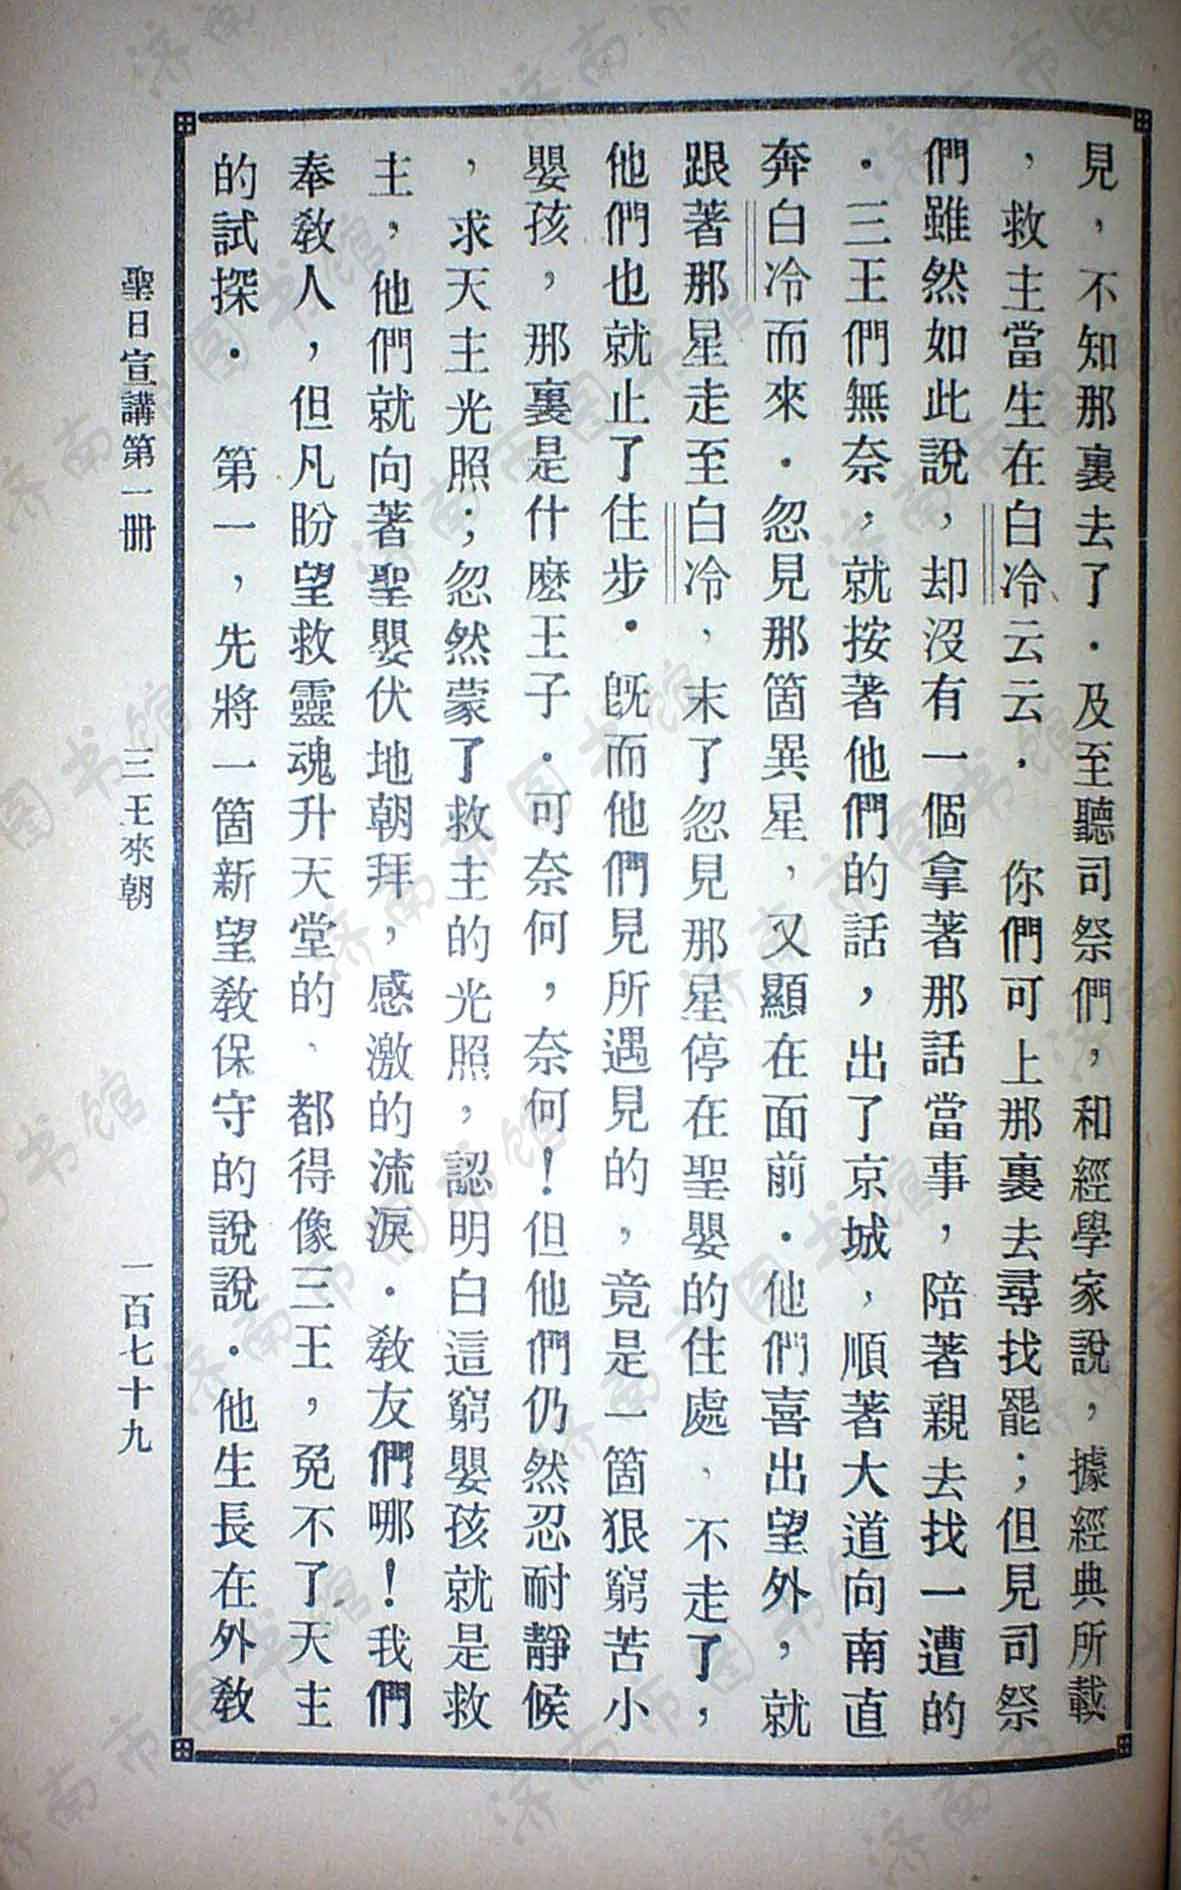 見，不知那裏去了．及至聽司祭們，和經學家說，據經典所載
，救主當生在白冷、云云．　你們可上那裏去尋找罷；但見司祭
們雖然如此說，却沒有一個拿著那話當事，陪著親去找一遭的
．三王們無奈，就按著他們的話，出了京城，順著大道向南直
奔白冷而來．忽見那箇異星，又顯在面前．他們喜出望外，就
跟著那星走至白冷，末了忽見那星停在聖嬰的住處、不走了，
他們也就止了住步．既而他們見所遇見的，竟是一箇狠窮苦小
嬰孩，那裏是什麽王子．可奈何，奈何！但他們仍然忍耐靜候
，求天主光照；忽然蒙了救主的光照，認明白這窮嬰孩就是救
主，他們就向著聖嬰伏地朝拜，感激的流淚．敎友們哪！我們
奉敎人，但凡盼望救靈魂升天堂的、都得像三王，免不了天主
的試探．　第一，先將一箇新望敎保守的說說．他生長在外敎
聖日宣講第一册　三王來朝　一百七十九
济南市图书馆